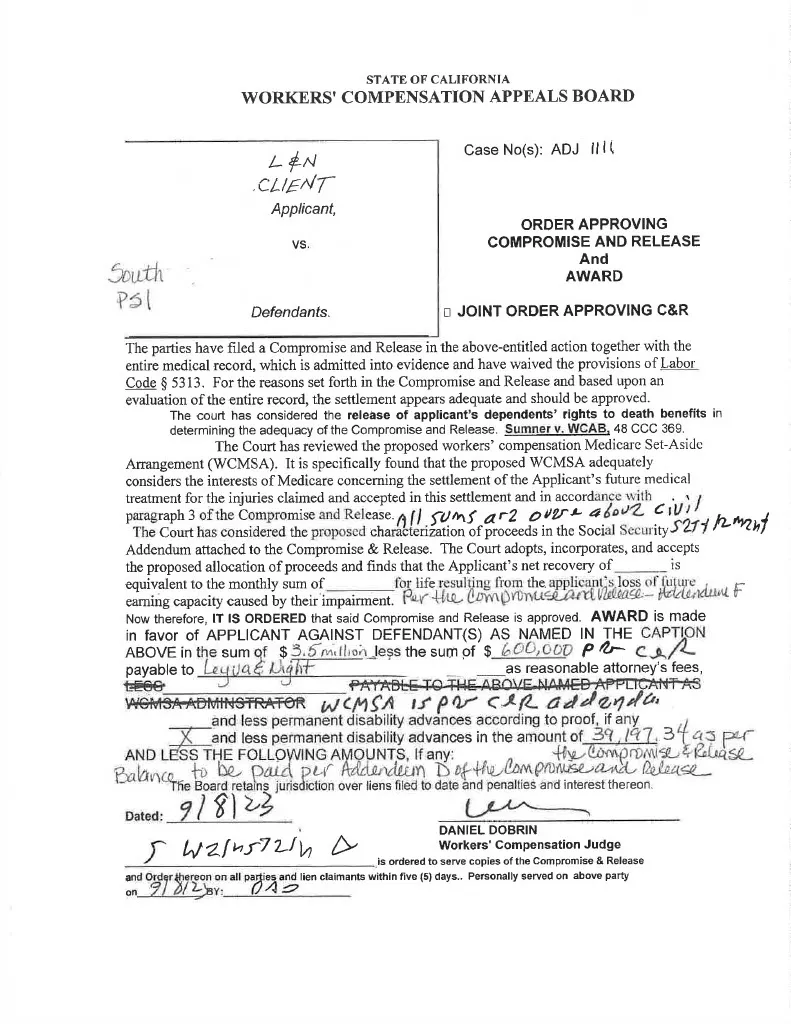 STATE OF CALIFORNIA
WORKERS' COMPENSATION APPEALS BOARD
L & N
CLIENT
Applicant,
vs.
South
PSI
Defendants.
Case No(s): ADJ 1111
ORDER APPROVING
COMPROMISE AND RELEASE
And
AWARD
JOINT ORDER APPROVING C&R
The parties have filed a Compromise and Release in the above-entitled action together with the
entire medical record, which is admitted into evidence and have waived the provisions of Labor
Code § 5313. For the reasons set forth in the Compromise and Release and based upon an
evaluation of the entire record, the settlement appears adequate and should be approved.
The court has considered the release of applicant's dependents' rights to death benefits in
determining the adequacy of the Compromise and Release. Sumner v. WCAB, 48 CCC 369.
The Court has reviewed the proposed workers' compensation Medicare Set-Aside
Arrangement (WCMSA). It is specifically found that the proposed WCMSA adequately
considers the interests of Medicare concerning the settlement of the Applicant's future medical
treatment for the injuries claimed and accepted in this settlement and in accordance with
paragraph 3 of the Compromise and Release. All sums are over & above civil
settlement
The Court has considered the proposed characterization of proceeds in the Social Security
Addendum attached to the Compromise & Release. The Court adopts, incorporates, and accepts
the proposed allocation of proceeds and finds that the Applicant's net recovery of ______ is
equivalent to the monthly sum of ______ for life resulting from the applicant's loss of future
earning capacity caused by their impairment. Per the Compromise and Release - Addendum F
Now therefore, IT IS ORDERED that said Compromise and Release is approved. AWARD is made
in favor of APPLICANT AGAINST DEFENDANT(S) AS NAMED IN THE CAPTION
ABOVE in the sum of $ 3.5 million less the sum of $ 600,000 per C&R
payable to Leyva & Night as reasonable attorney's fees,
LESS PAYABLE TO THE ABOVE-NAMED APPLICANT AS
WCMSA ADMINSTRATOR WCMSA is per C&R addenda
and less permanent disability advances according to proof, if any
X and less permanent disability advances in the amount of 39,197.34 as per
the Compromise & Release
AND LESS THE FOLLOWING AMOUNTS, If any:
Balance to be paid per Addendum D of the Compromise and Release
The Board retains jurisdiction over liens filed to date and penalties and interest thereon.
Dated: 9/8/23
DANIEL DOBRIN
Workers' Compensation Judge
is ordered to serve copies of the Compromise & Release
and Order thereon on all parties and lien claimants within five (5) days.. Personally served on above party
on 9/8/23 BY: